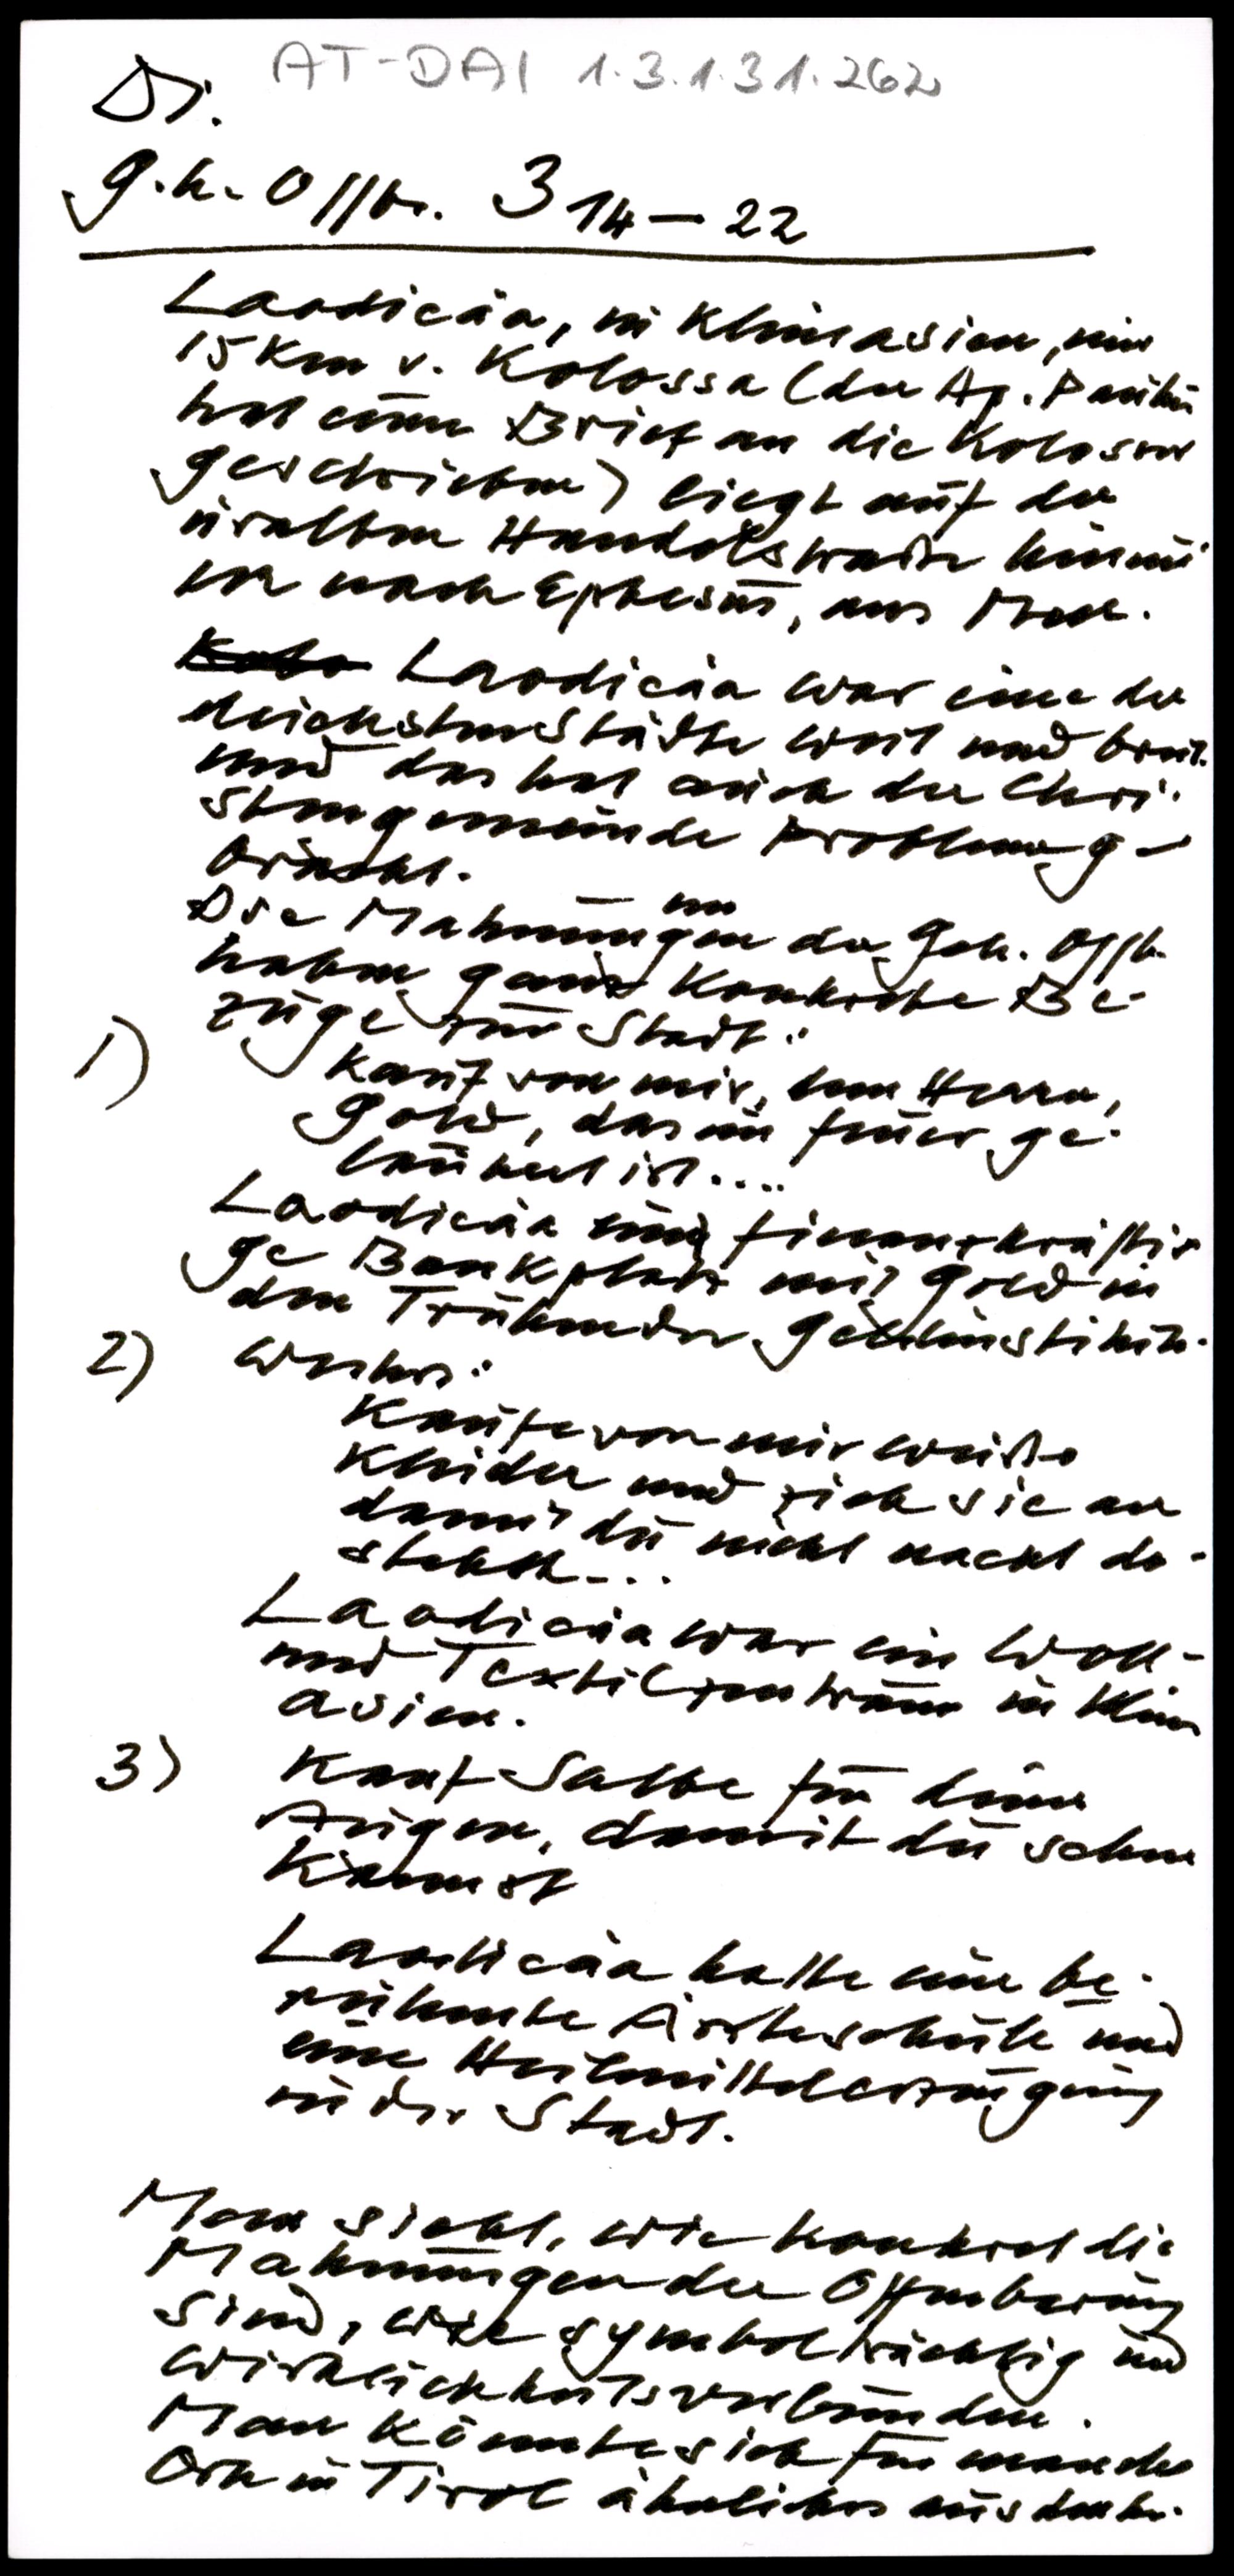 AT-DAI 1.3.1.31.262
Di.
g.h. Offb. 3 14 – 22
Laodicäa, in Kleinasien, nur
15 km v. Kolossa (der Ap. Paulus
hat einen Brief an die Kolosser
geschrieben) liegt auf der
uralten Handelsstraße hinun-
ter nach Ephesus, ans Meer.
Kolo Laodicäa war eine der
reichsten Städte weit und breit.
und das hat auch der Chri-
stengemeinde Probleme ge-
bracht.
Die Mahnungen in der Geh. Offb.
haben ganz konkrete Be-
züge zur Stadt:
1) Kauf von mir, dem Herrn,
Gold, das im Feuer ge-
läutert ist....
Laodicäa ein finanzkräfti-
ger Bankplatz mit Gold in
den Truhen der Geldinstitute.
2) Weiters:
Kaufe von mir weiße
Kleider und zieh sie an
damit du nicht nackt da-
stehst...
Laodicäa war ein Woll-
und Textilzentrum in Klein
asien.
3) Kauf Salbe für deine
Augen, damit du sehen
kannst
Laodicäa hatte eine be-
rühmte Ärzteschule und
eine Heilmittelerzeugung
in der Stadt.
Man sieht, wie konkret die
Mahnungen der Offenbarung
sind, wie symbolträchtig und
wirklichkeitsverbunden.
Man könnte sich für manche
Orte in Tirol ähnliches ausdenken.